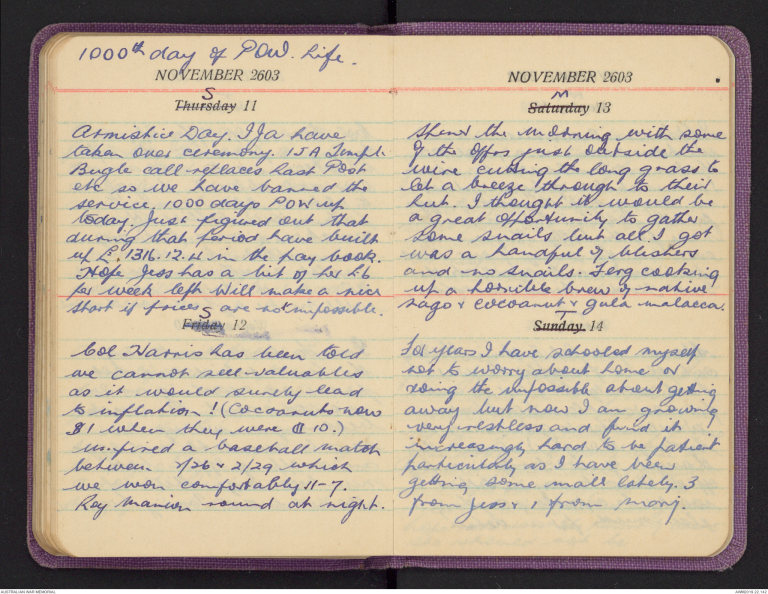 1000th day of POW. Life.
NOVEMBER 2603
S
Thursday 11
Armistice Day. IJA have
taken over ceremony. IJA Templ.
Bugle call replaces Last Post
etc so we have banned the
service. 1000 days POW up
today. Just figured out that
during that period have built
up £. 1316.12.4 in the pay book.
Hope Jess has a bit of her £6
per week left. Will make a nice
start if prices are not impossible.
S
Friday 12
Col Harris has been told
we cannot sell valuables
as it would surely lead
to inflation! (Cocoanuts now
$1 when they were $10.)
Umpired a baseball match
between 2/26 & 2/29 which
we won comfortably 11-7.
Ray Manion round at night.
NOVEMBER 2603
M
Saturday 13
Spent the morning with some
of the offrs just outside the
wire cutting the long grass to
let a breeze through to their
hut. I thought it would be
a great opportunity to gather
some snails but all I got
was a handful of blisters
and no snails. Ferg cooking
up a horrible brew of native
sago & cocoanut & gula malacca.
T
Sunday. 14
For years I have schooled myself
not to worry about home or
doing the impossible about getting
away but now I am growing
very restless and find it
increasingly hard to be patient
particularly as I have been
getting some mail lately. 3
from Jess & 1 from Marj.
AUSTRALIAN WAR MEMORIAL